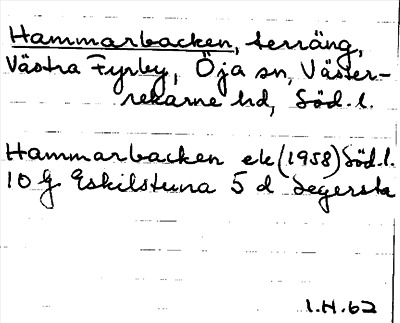 Hammarbacken, terräng,
Västra Fyrby, Öja sn, Väster-
rekarne hd, Söd. l.
Hammarbacken ek (1958) Söd. l.
10 G Eskilstuna 5 d Segersta
I.H. 62